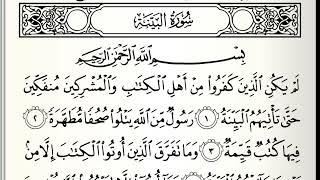 سُورَةُ البَيِّنَةِ
بِسْمِ ٱللَّهِ ٱلرَّحْمَٰنِ ٱلرَّحِيمِ
لَمْ يَكُنِ ٱلَّذِينَ كَفَرُوا۟ مِنْ أَهْلِ ٱلْكِتَٰبِ وَٱلْمُشْرِكِينَ مُنفَكِّينَ
حَتَّىٰ تَأْتِيَهُمُ ٱلْبَيِّنَةُ ١ رَسُولٌ مِّنَ ٱللَّهِ يَتْلُوا۟ صُحُفًا مُّطَهَّرَةً ٢
فِيهَا كُتُبٌ قَيِّمَةٌ ٣ وَمَا تَفَرَّقَ ٱلَّذِينَ أُوتُوا۟ ٱلْكِتَٰبَ إِلَّا مِنۢ